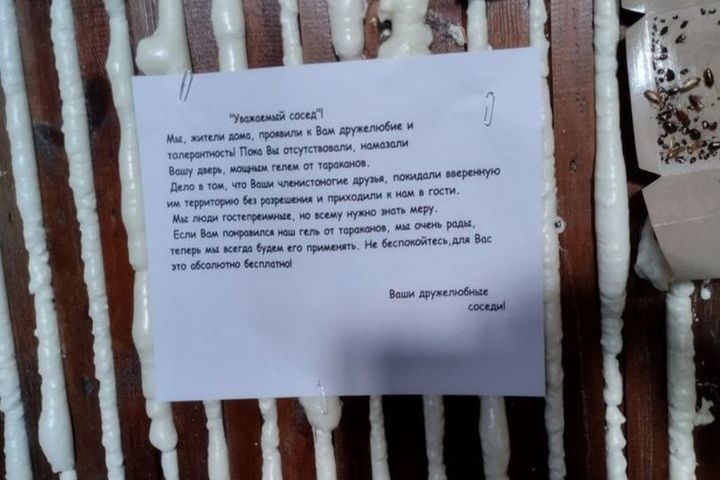 "Уважаемый сосед"!
Мы, жители дома, проявили к Вам дружелюбие и
толерантность! Пока Вы отсутствовали, намазали
Вашу дверь, мощным гелем от тараканов.
Дело в том, что Ваши членистоногие друзья, покидали вверенную
им территорию без разрешения и приходили к нам в гости.
Мы люди гостеприимные, но всему нужно знать меру.
Если Вам понравился наш гель от тараканов, мы очень рады,
теперь мы всегда будем его применять. Не беспокойтесь,для Вас
это абсолютно бесплатно!
Ваши дружелюбные
соседи!